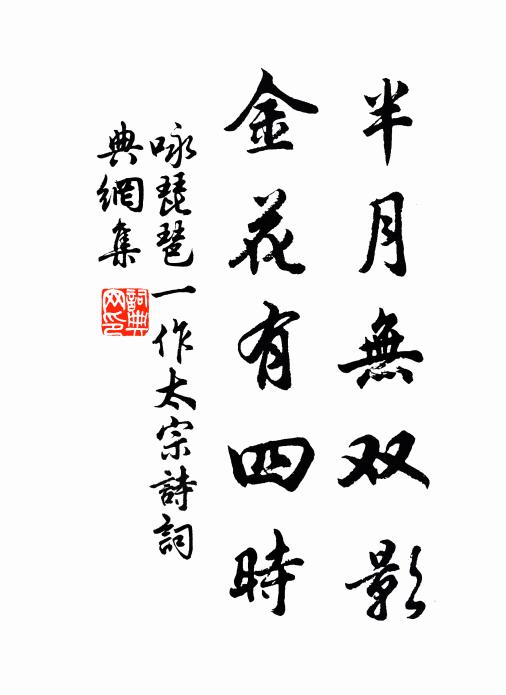 半月無双影
金花有四時
咏琵琶一作太宗詩詞
典網集
詞典网印